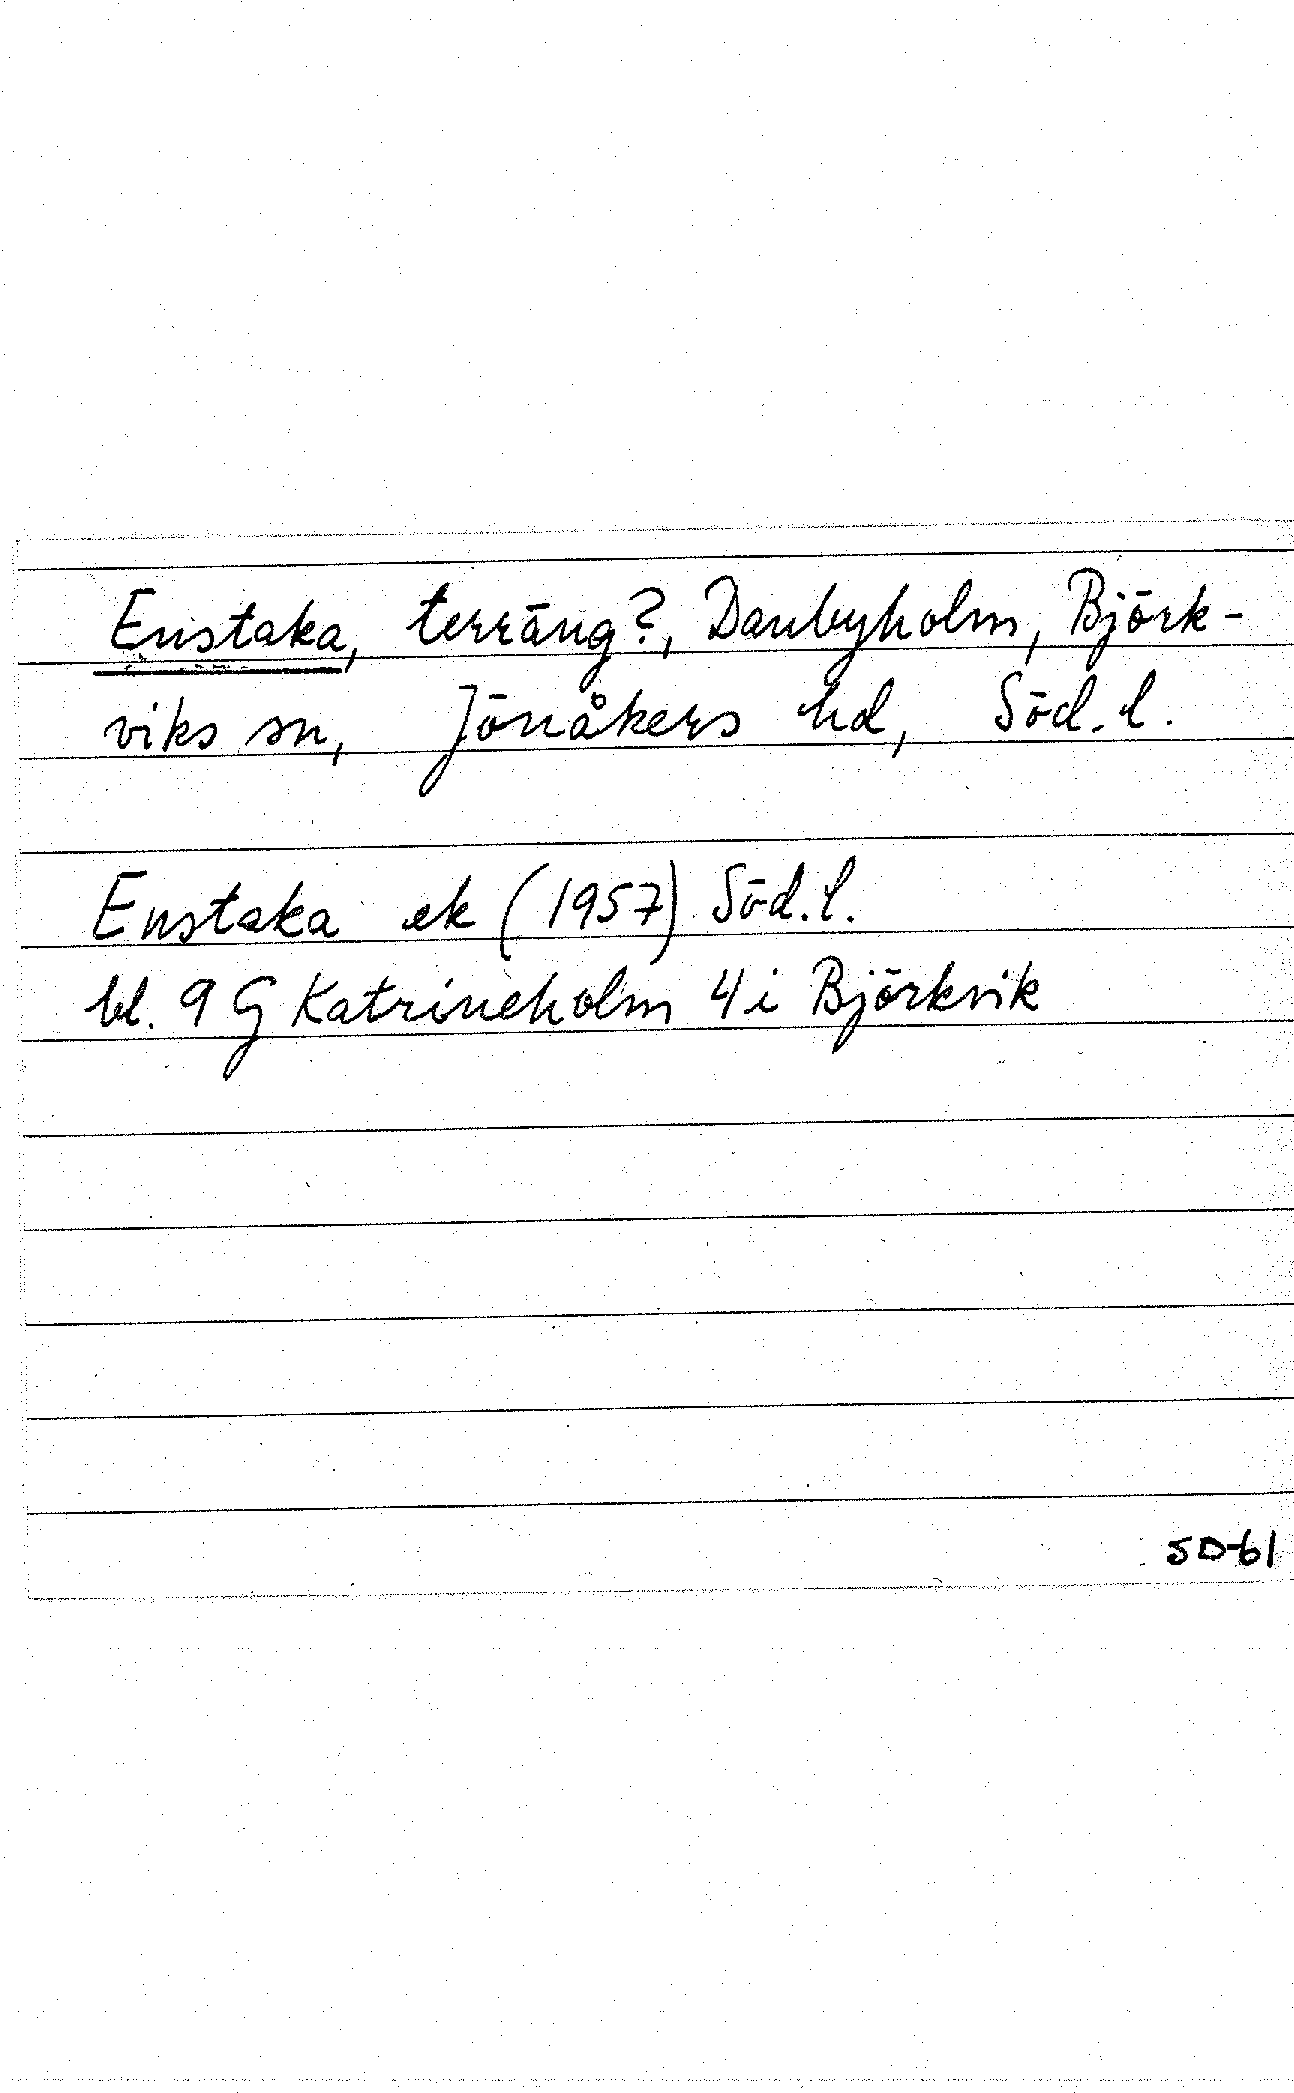 Enstaka, terräng?, Danbyholm, Björk-
viks sn, Jönåkers hd, Söd. l.
Enstaka ek (1957) Söd. l.
bl. 9 G Katrineholm 4 i Björkvik
SD-61